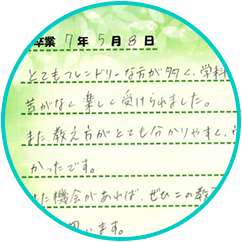 卒業 7年5月8日
とてもフレンドリーな方が多く、学科
苦がなく楽しく受けられました。
また教え方がとても分かりやすく、
かったです。
また機会があれば、ぜひこの教
思います。